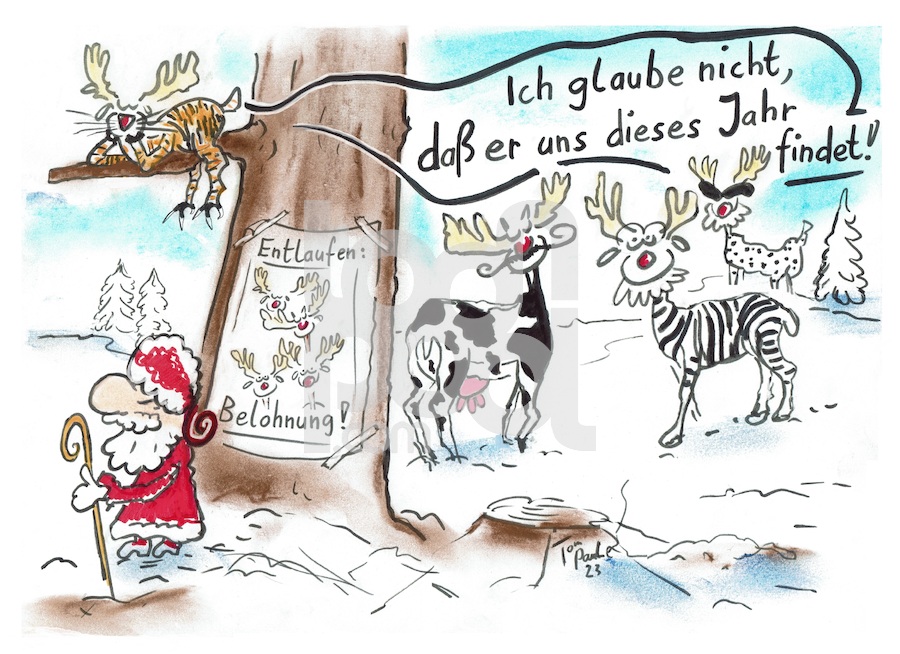 Ich glaube nicht,
daß er uns dieses Jahr
findet!
Entlaufen:
Belohnung!
Tom
Pauk
23